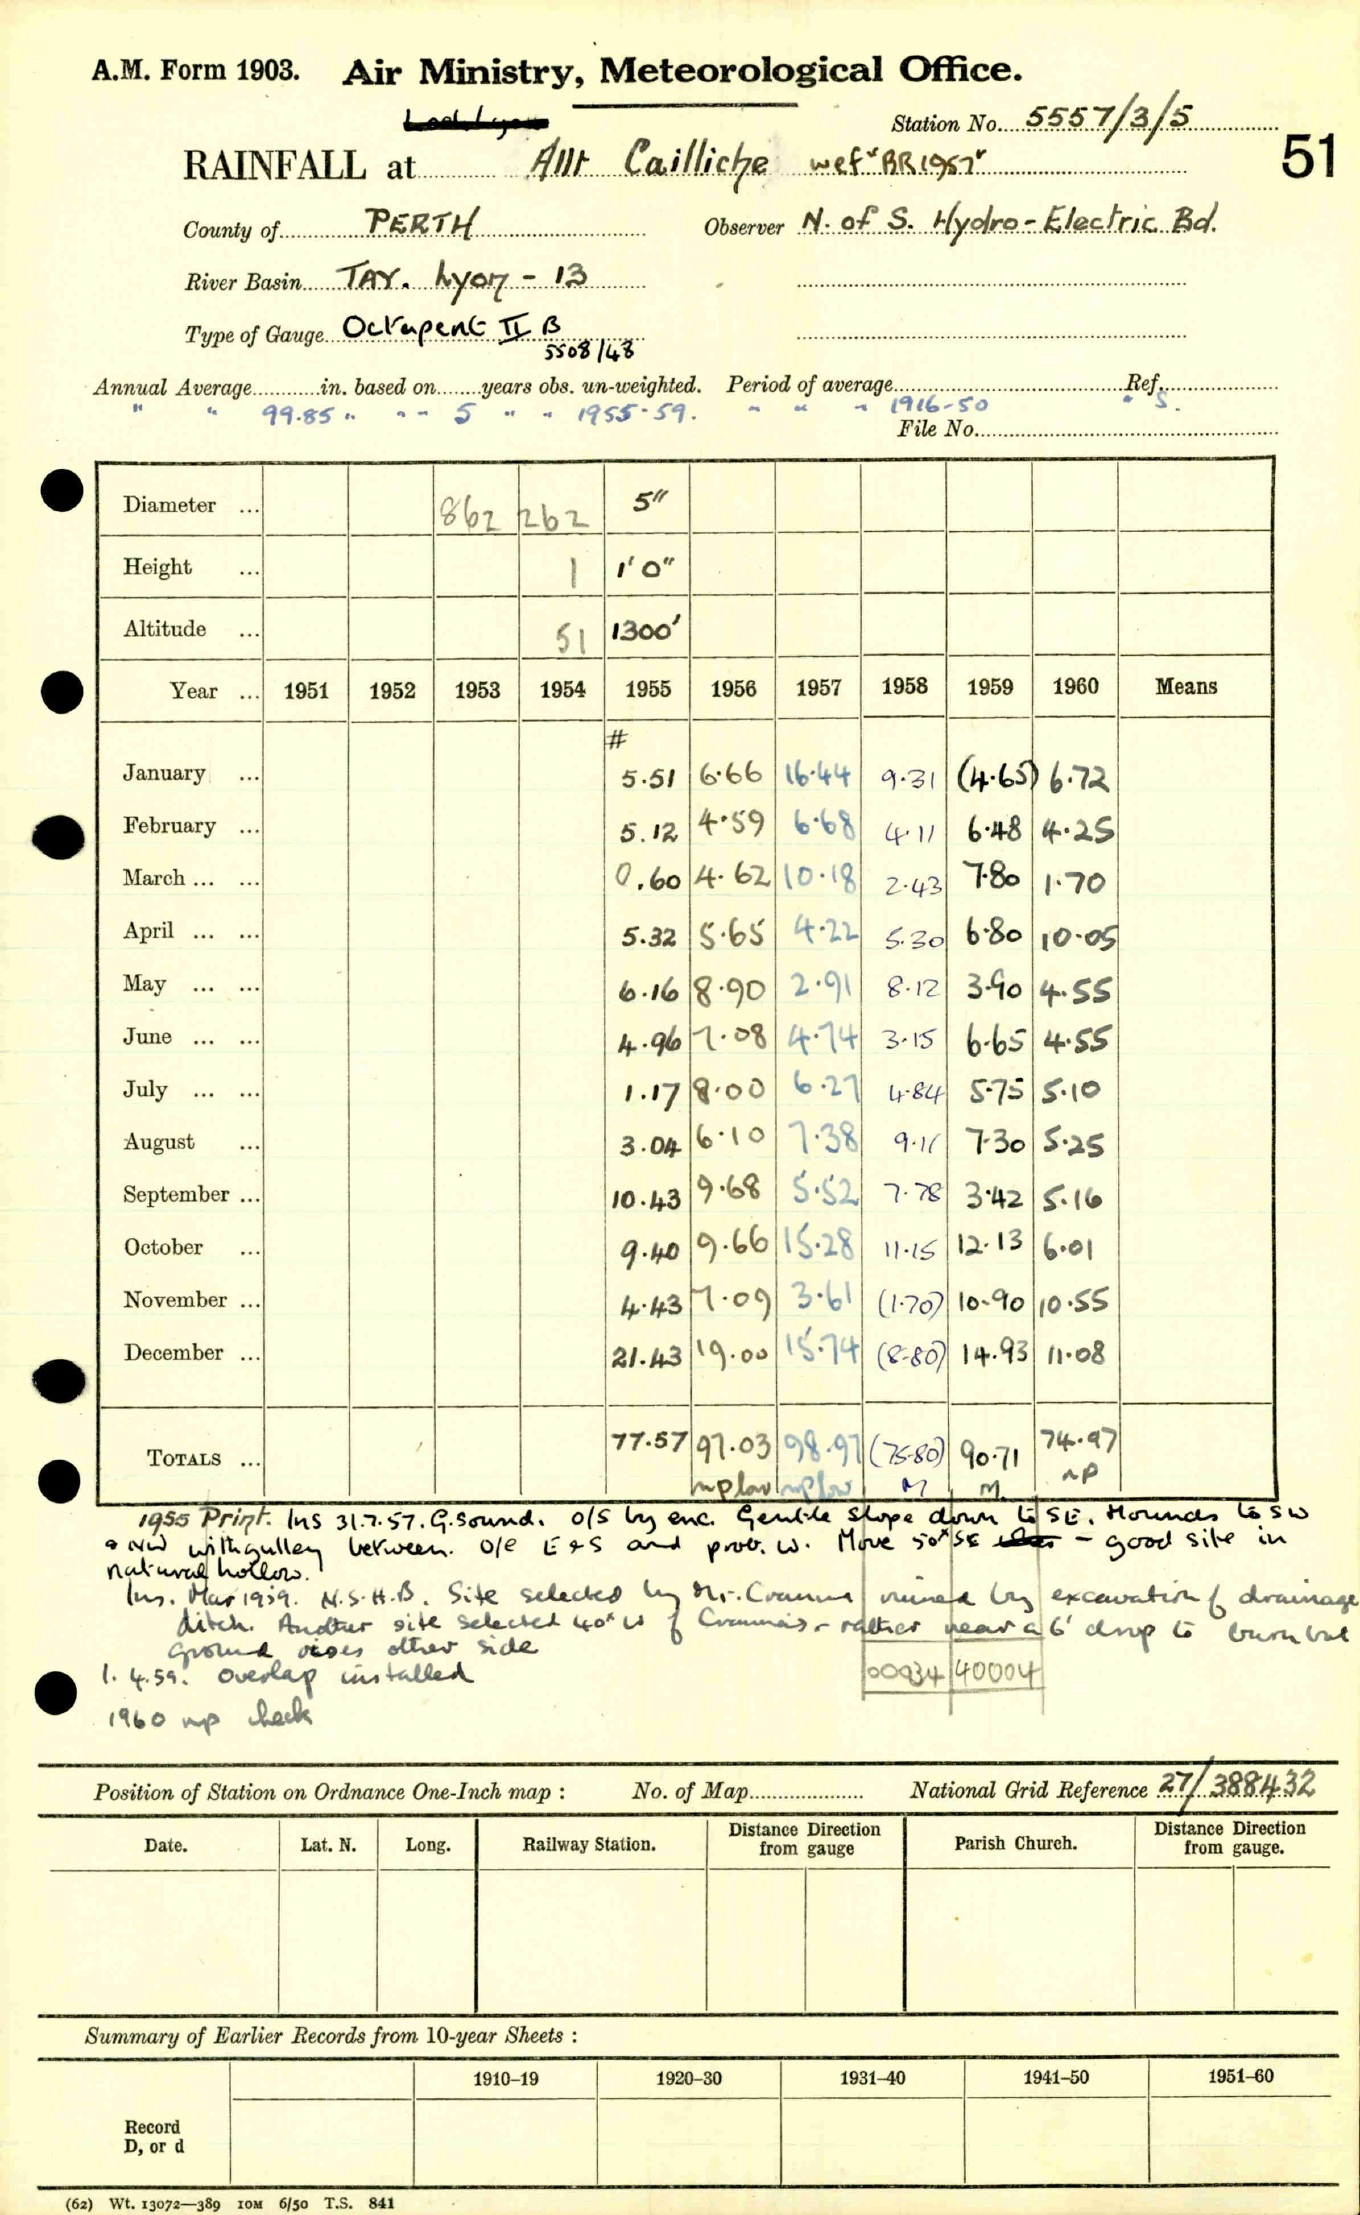 A.M. Form 1903. Air Ministry, Meteorological Office.
Station No. 5557/3/5
RAINFALL at Allt Cailliche wef "BR1957"
51
County of PERTH Observer N. of S. Hydro-Electric Bd.
River Basin TAY. Lyon - 13
Type of Gauge Octapent II B
5508/48
Annual Average in. based on years obs. un-weighted. Period of average Ref.
" " 99.85 " " " 5 " " 1955-59. " " " 1916-50 " S.
File No.
Diameter ... 862 262 5"
Height ... 1 1'0"
Altitude ... 51 1300'
Year ... 1951 1952 1953 1954 1955 1956 1957 1958 1959 1960 Means
#
January ... 5.51 6.66 16.44 9.31 (4.65) 6.72
February ... 5.12 4.59 6.68 4.11 6.48 4.25
March ... ... 0.60 4.62 10.18 2.43 7.80 1.70
April ... ... 5.32 5.65 4.22 5.30 6.80 10.05
May ... ... 6.16 8.90 2.91 8.12 3.90 4.55
June ... ... 4.96 7.08 4.74 3.15 6.65 4.55
July ... ... 1.17 8.00 6.27 4.84 5.75 5.10
August ... 3.04 6.10 7.38 9.11 7.30 5.25
September ... 10.43 9.68 5.52 7.78 3.42 5.16
October ... 9.40 9.66 15.28 11.15 12.13 6.01
November ... 4.43 7.09 3.61 (1.70) 10.90 10.55
December ... 21.43 19.00 15.74 (8.80) 14.93 11.08
TOTALS ... 77.57 97.03 98.97 (75.80) 90.71 74.97
np low np low M M. np
1955 Print. Ins 31.7.57. G. Sound. O/S by enc. Gentle slope down to SE. Mounds to SW
& NW with gulley between. O/e E & S and prob. W. Move 50x SE - good site in
natural hollow.
Ins. Mar 1959. N.S.H.B. Site selected by Mr. ruined by excavation of drainage
ditch. Another site selected 40x W of - rather near a 6' drop to burn but
ground rises other side
1.4.59. Overlap installed
00934 40004
1960 np check
Position of Station on Ordnance One-Inch map : No. of Map National Grid Reference 27/388432
Date. Lat. N. Long. Railway Station. Distance Direction from gauge Parish Church. Distance Direction from gauge.
Summary of Earlier Records from 10-year Sheets :
1910–19 1920–30 1931–40 1941–50 1951–60
Record
D, or d
(62) Wt. 13072—389 10M 6/50 T.S. 841